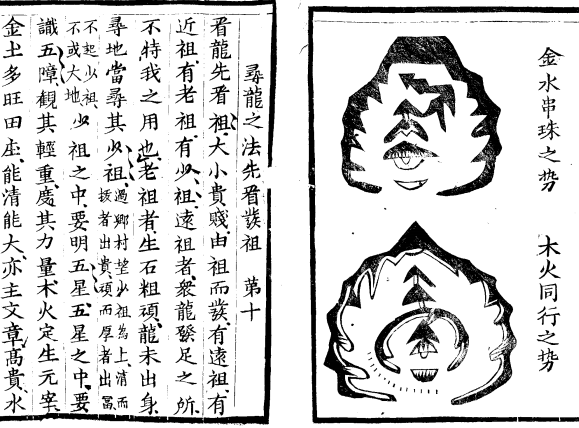 金水串珠之势
木火同行之势
尋龍之法先看發祖 第十
看龍先看祖、大小貴賤由祖而發、有遠祖、有
近祖、有老祖、有少祖、遠祖者、衆龍發足之所、
不特我之用也、老祖者、生石粗頑、龍未出身、
尋地當尋其少祖、過鄉村望少祖為上、清而
拔者出貴、頑而厚者出冨
不起少祖、
不或大地、少祖之中、要明五星、五星之中、要
識五障、觀其輕重、度其力量、木火定生元宰、
金土多旺田庄、能清能大、亦主文章、高貴、水